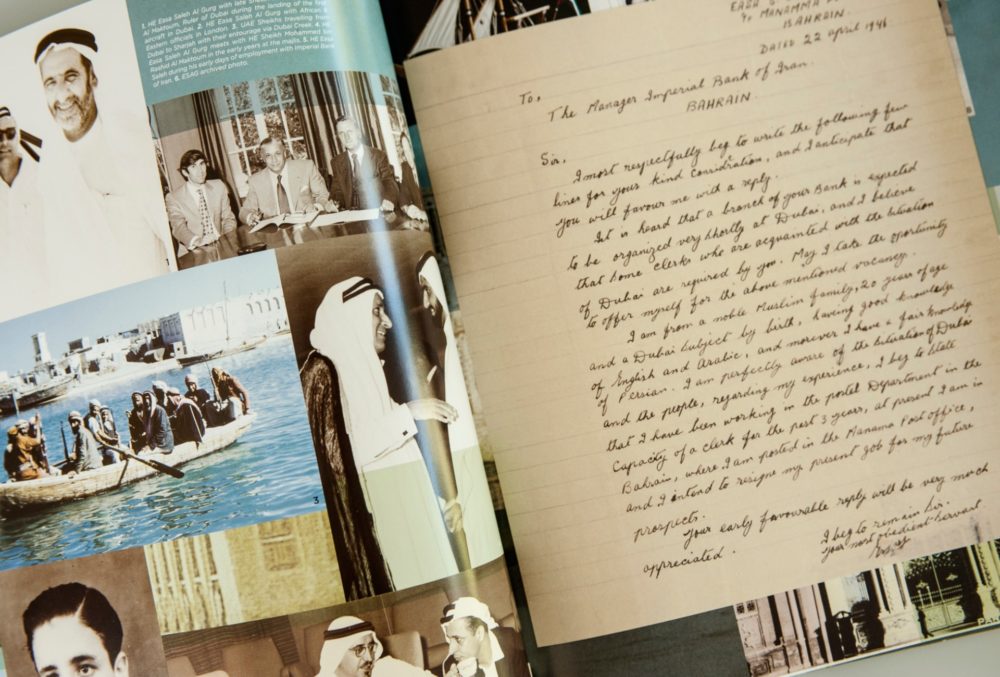 1. HE Easa Saleh Al Gurg with late
Al Maktoum, Ruler of Dubai during the landing of the first
aircraft in Dubai. 2. HE Easa Saleh Al Gurg with African &
Eastern officials in London. 3. UAE Sheikhs travelling from
Dubai to Sharjah with their entourage via Dubai Creek. 4. HE
Easa Saleh Al Gurg meets with HE Sheikh Mohammed bin
Rashid Al Maktoum in the early years at the majlis. 5. HE Easa
Saleh during his early days of employment with Imperial Bank
of Iran. 6. ESAG archived photo.
3
EASA
MANAMMA
BAHRAIN.
DATED 22 April 1946.
To,
The Manager Imperial Bank of Iran.
BAHRAIN.
Sir,
I most respectfully beg to write the following few
lines for your kind Considration, and I anticipate that
you will favour me with a reply.
It is heard that a branch of your Bank is expected
to be organized very shortly at Dubai, and I believe
that some clerks who are acquainted with the situation
of Dubai are required by you. May I take the oportunity
to offer myself for the above mentioned vacancy.
I am from a noble Muslim family, 20 years of age
and a Dubai subject by birth, having good knowledge
of English and Arabic, and morever I have a fair knowledge
of Persian. I am perfectly aware of the situation of Dubai
and the people, regarding my experience, I beg to state
that I have been working in the postel Department in the
Capacity of a clerk for the past 3 years, at present I am in
Bahrain, where I am posted in the Manama Post office,
and I intend to resigne my present job for my future
prospects.
Your early favourable reply will be very much
appreciated.
I beg to remain Sir.
your most obedient servant